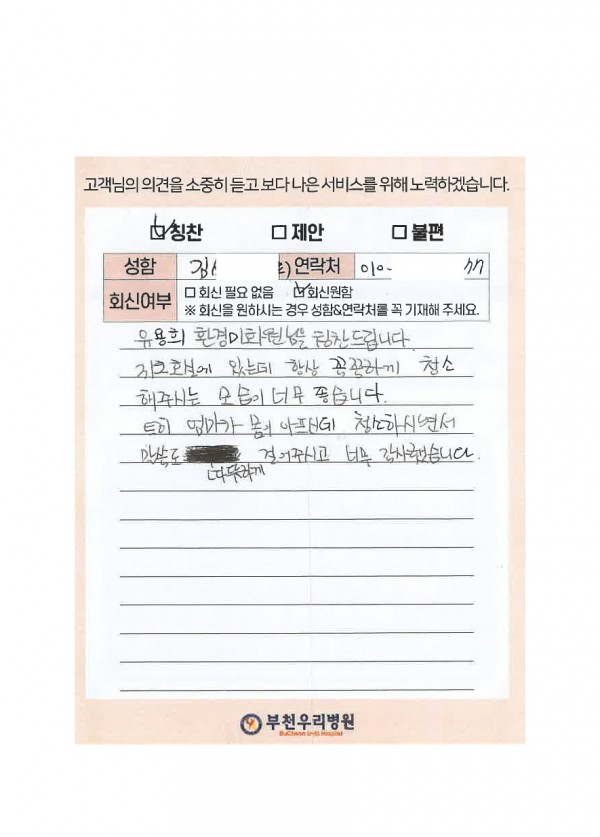 고객님의 의견을 소중히 듣고 보다 나은 서비스를 위해 노력하겠습니다.
칭찬 제안 불편
성함 김 연락처 010-
회신여부 회신 필요 없음 회신원함
※ 회신을 원하시는 경우 성함&연락처를 꼭 기재해 주세요.
유용희 환경미화원님을 칭찬드립니다.
있는데 항상 꼼꼼하게 청소
해주시는 모습이 너무 좋습니다.
특히 엄마가 몸이 아프신데 청소하시면서
말씀도 걸어주시고 너무 감사했습니다.
따뜻하게
부천우리병원
BuCheon Hospital